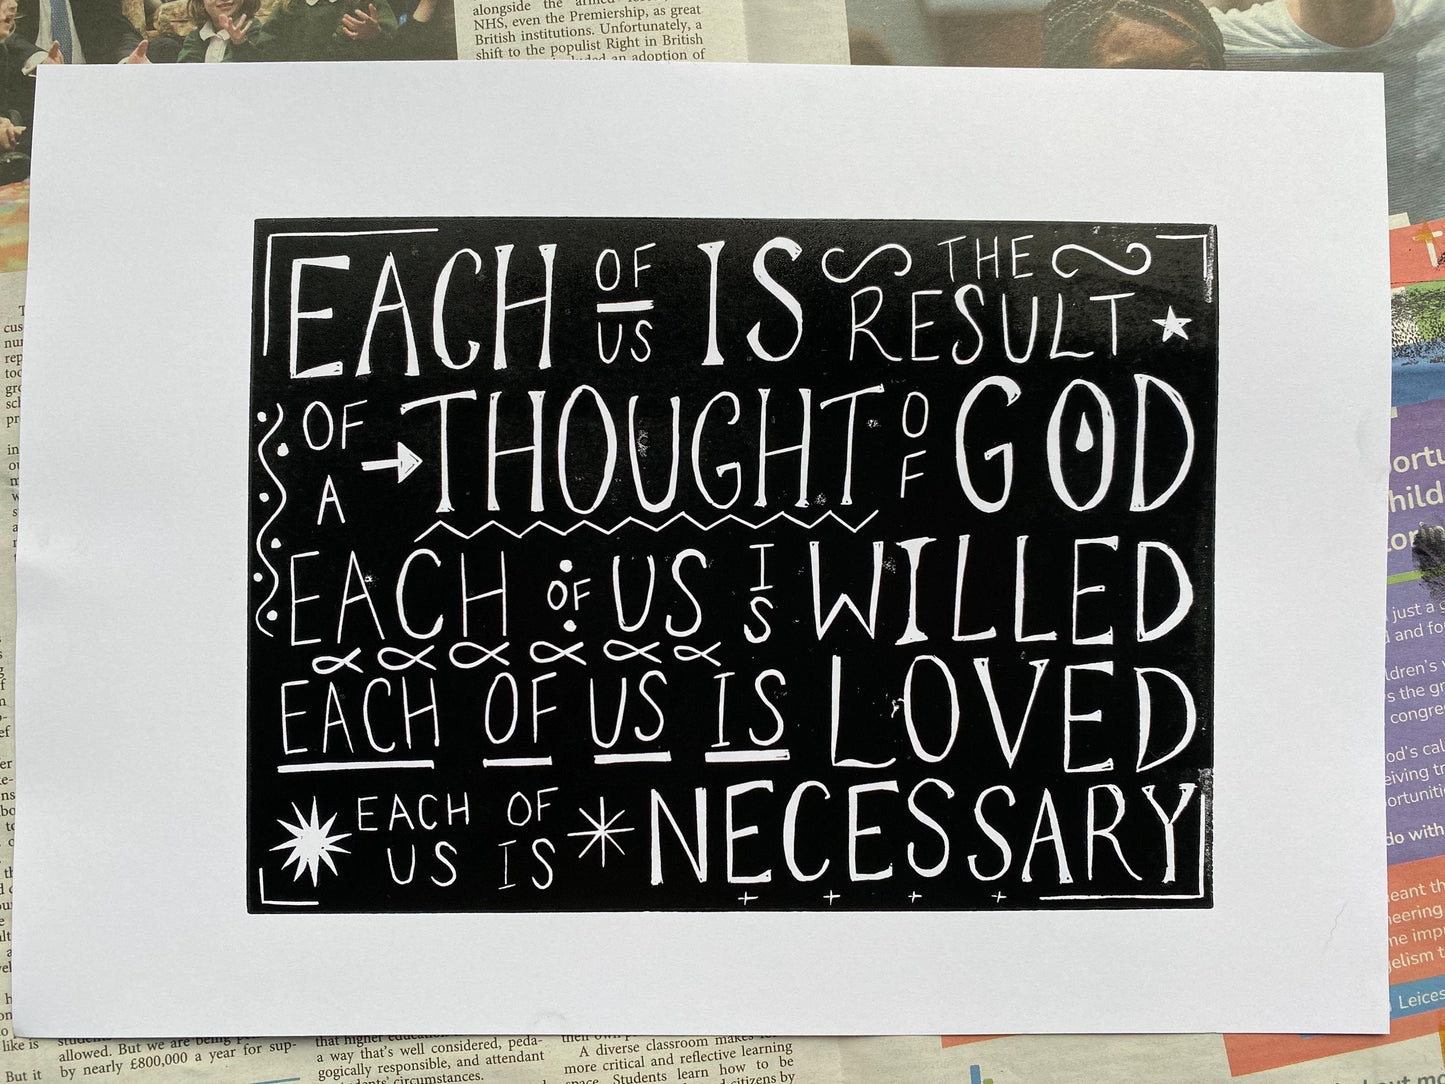 alongside the armed
NHS, even the Premiership, as great
British institutions. Unfortunately, a
shift to the populist Right in British
an adoption of
EACH OF US IS THE RESULT
OF A THOUGHT OF GOD
EACH OF US IS WILLED
EACH OF US IS LOVED
EACH OF US IS NECESSARY
allowed. But we are being
by nearly £800,000 a year for sup-
But it
like is
that higher
a way that's well considered, peda-
gogically responsible, and attendant
circumstances.
their own
A diverse classroom makes
more critical and reflective learning
space. Students learn how to be
citizens by
just a
and fo
s the gr
congre
do with
Leices